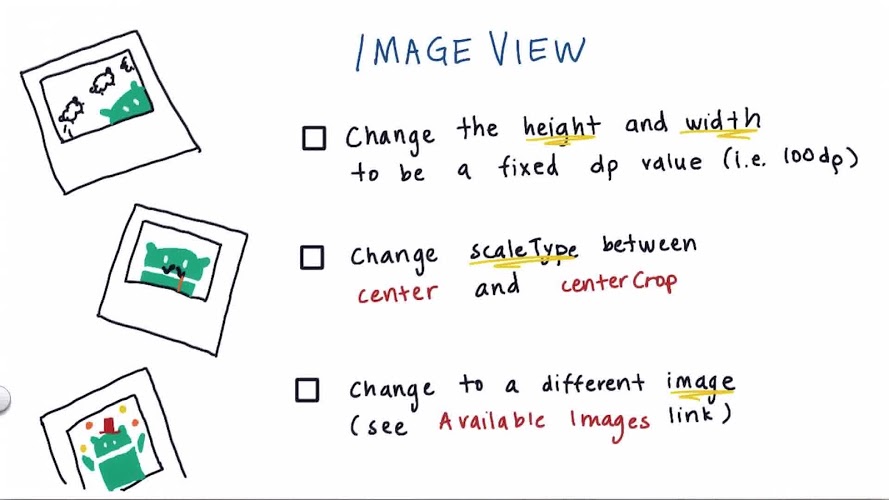 IMAGE VIEW
Change the height and width
to be a fixed dp value (i.e. 100dp)
Change scaleType between
center and centerCrop
Change to a different image
(see Available Images link)